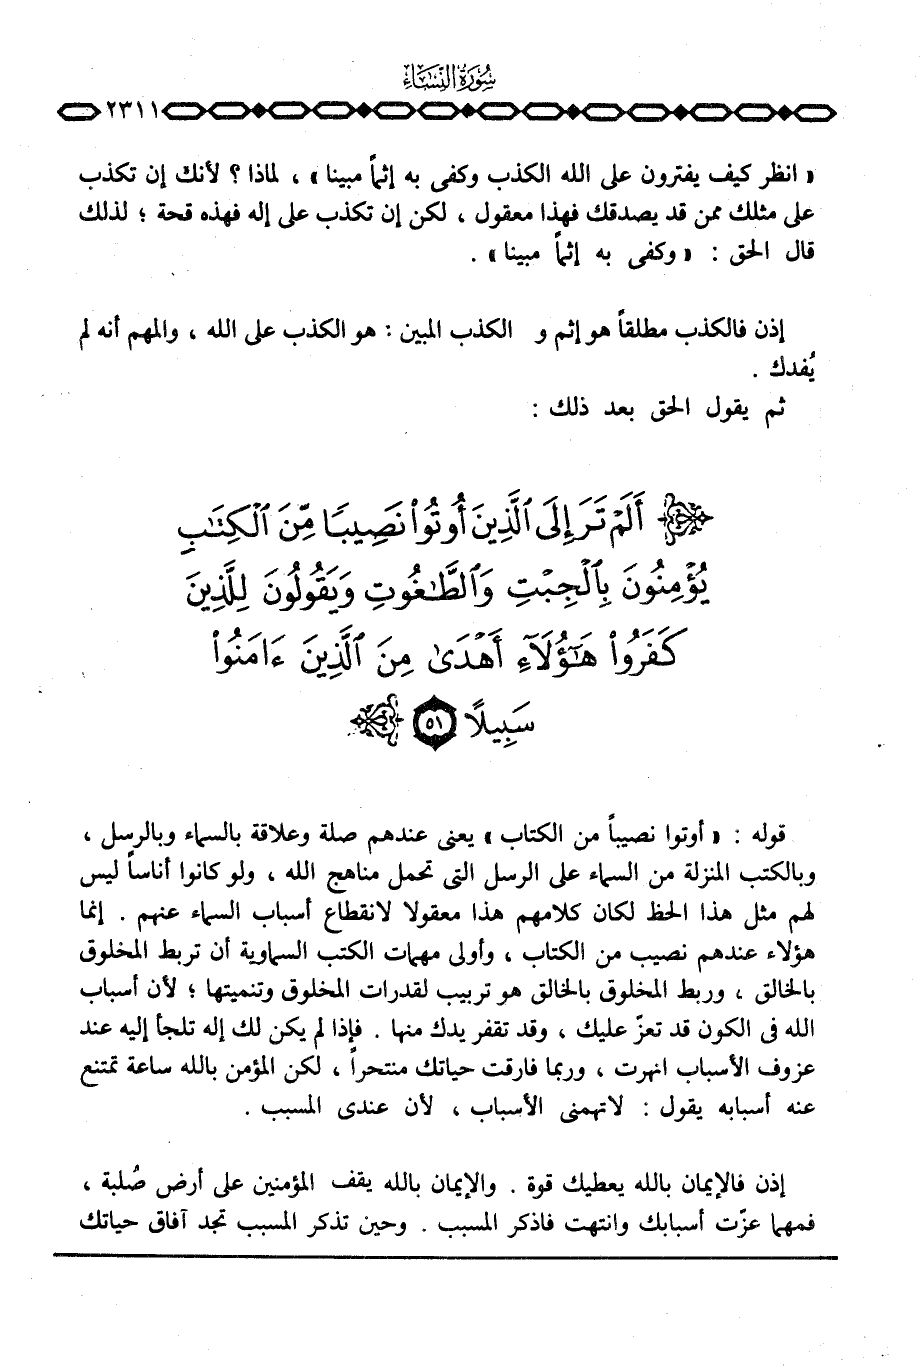 سُورَةُ النِّسَاءِ
٢٣١١
« انظر كيف يفترون على الله الكذب وكفى به إثماً مبينا » ، لماذا ؟ لأنك إن تكذب
على مثلك ممن قد يصدقك فهذا معقول ، لكن إن تكذب على إله فهذه قحة ؛ لذلك
قال الحق : « وكفى به إثماً مبينا » .
إذن فالكذب مطلقاً هو إثم و الكذب المبين : هو الكذب على الله ، والمهم أنه لم
يُفدك .
ثم يقول الحق بعد ذلك :
أَلَمْ تَرَ إِلَى ٱلَّذِينَ أُوتُوا۟ نَصِيبًا مِّنَ ٱلْكِتَٰبِ
يُؤْمِنُونَ بِٱلْجِبْتِ وَٱلطَّٰغُوتِ وَيَقُولُونَ لِلَّذِينَ
كَفَرُوا۟ هَٰٓؤُلَآءِ أَهْدَىٰ مِنَ ٱلَّذِينَ ءَامَنُوا۟
سَبِيلًا ٥١
قوله : « أوتوا نصيباً من الكتاب » يعنى عندهم صلة وعلاقة بالسماء وبالرسل ،
وبالكتب المنزلة من السماء على الرسل التى تحمل مناهج الله ، ولو كانوا أناساً ليس
لهم مثل هذا الحظ لكان كلامهم هذا معقولا لانقطاع أسباب السماء عنهم . إنما
هؤلاء عندهم نصيب من الكتاب ، وأولى مهمات الكتب السماوية أن تربط المخلوق
بالخالق ، وربط المخلوق بالخالق هو تربيب لقدرات المخلوق وتنميتها ؛ لأن أسباب
الله فى الكون قد تعزّ عليك ، وقد تقفر يدك منها . فإذا لم يكن لك إله تلجأ إليه عند
عزوف الأسباب انهرت ، وربما فارقت حياتك منتحراً ، لكن المؤمن بالله ساعة تمتنع
عنه أسبابه يقول : لاتهمنى الأسباب ، لأن عندى المسبب .
إذن فالإيمان بالله يعطيك قوة . والإيمان بالله يقف المؤمنين على أرض صُلبة ،
فمهما عزّت أسبابك وانتهت فاذكر المسبب . وحين تذكر المسبب تجد آفاق حياتك